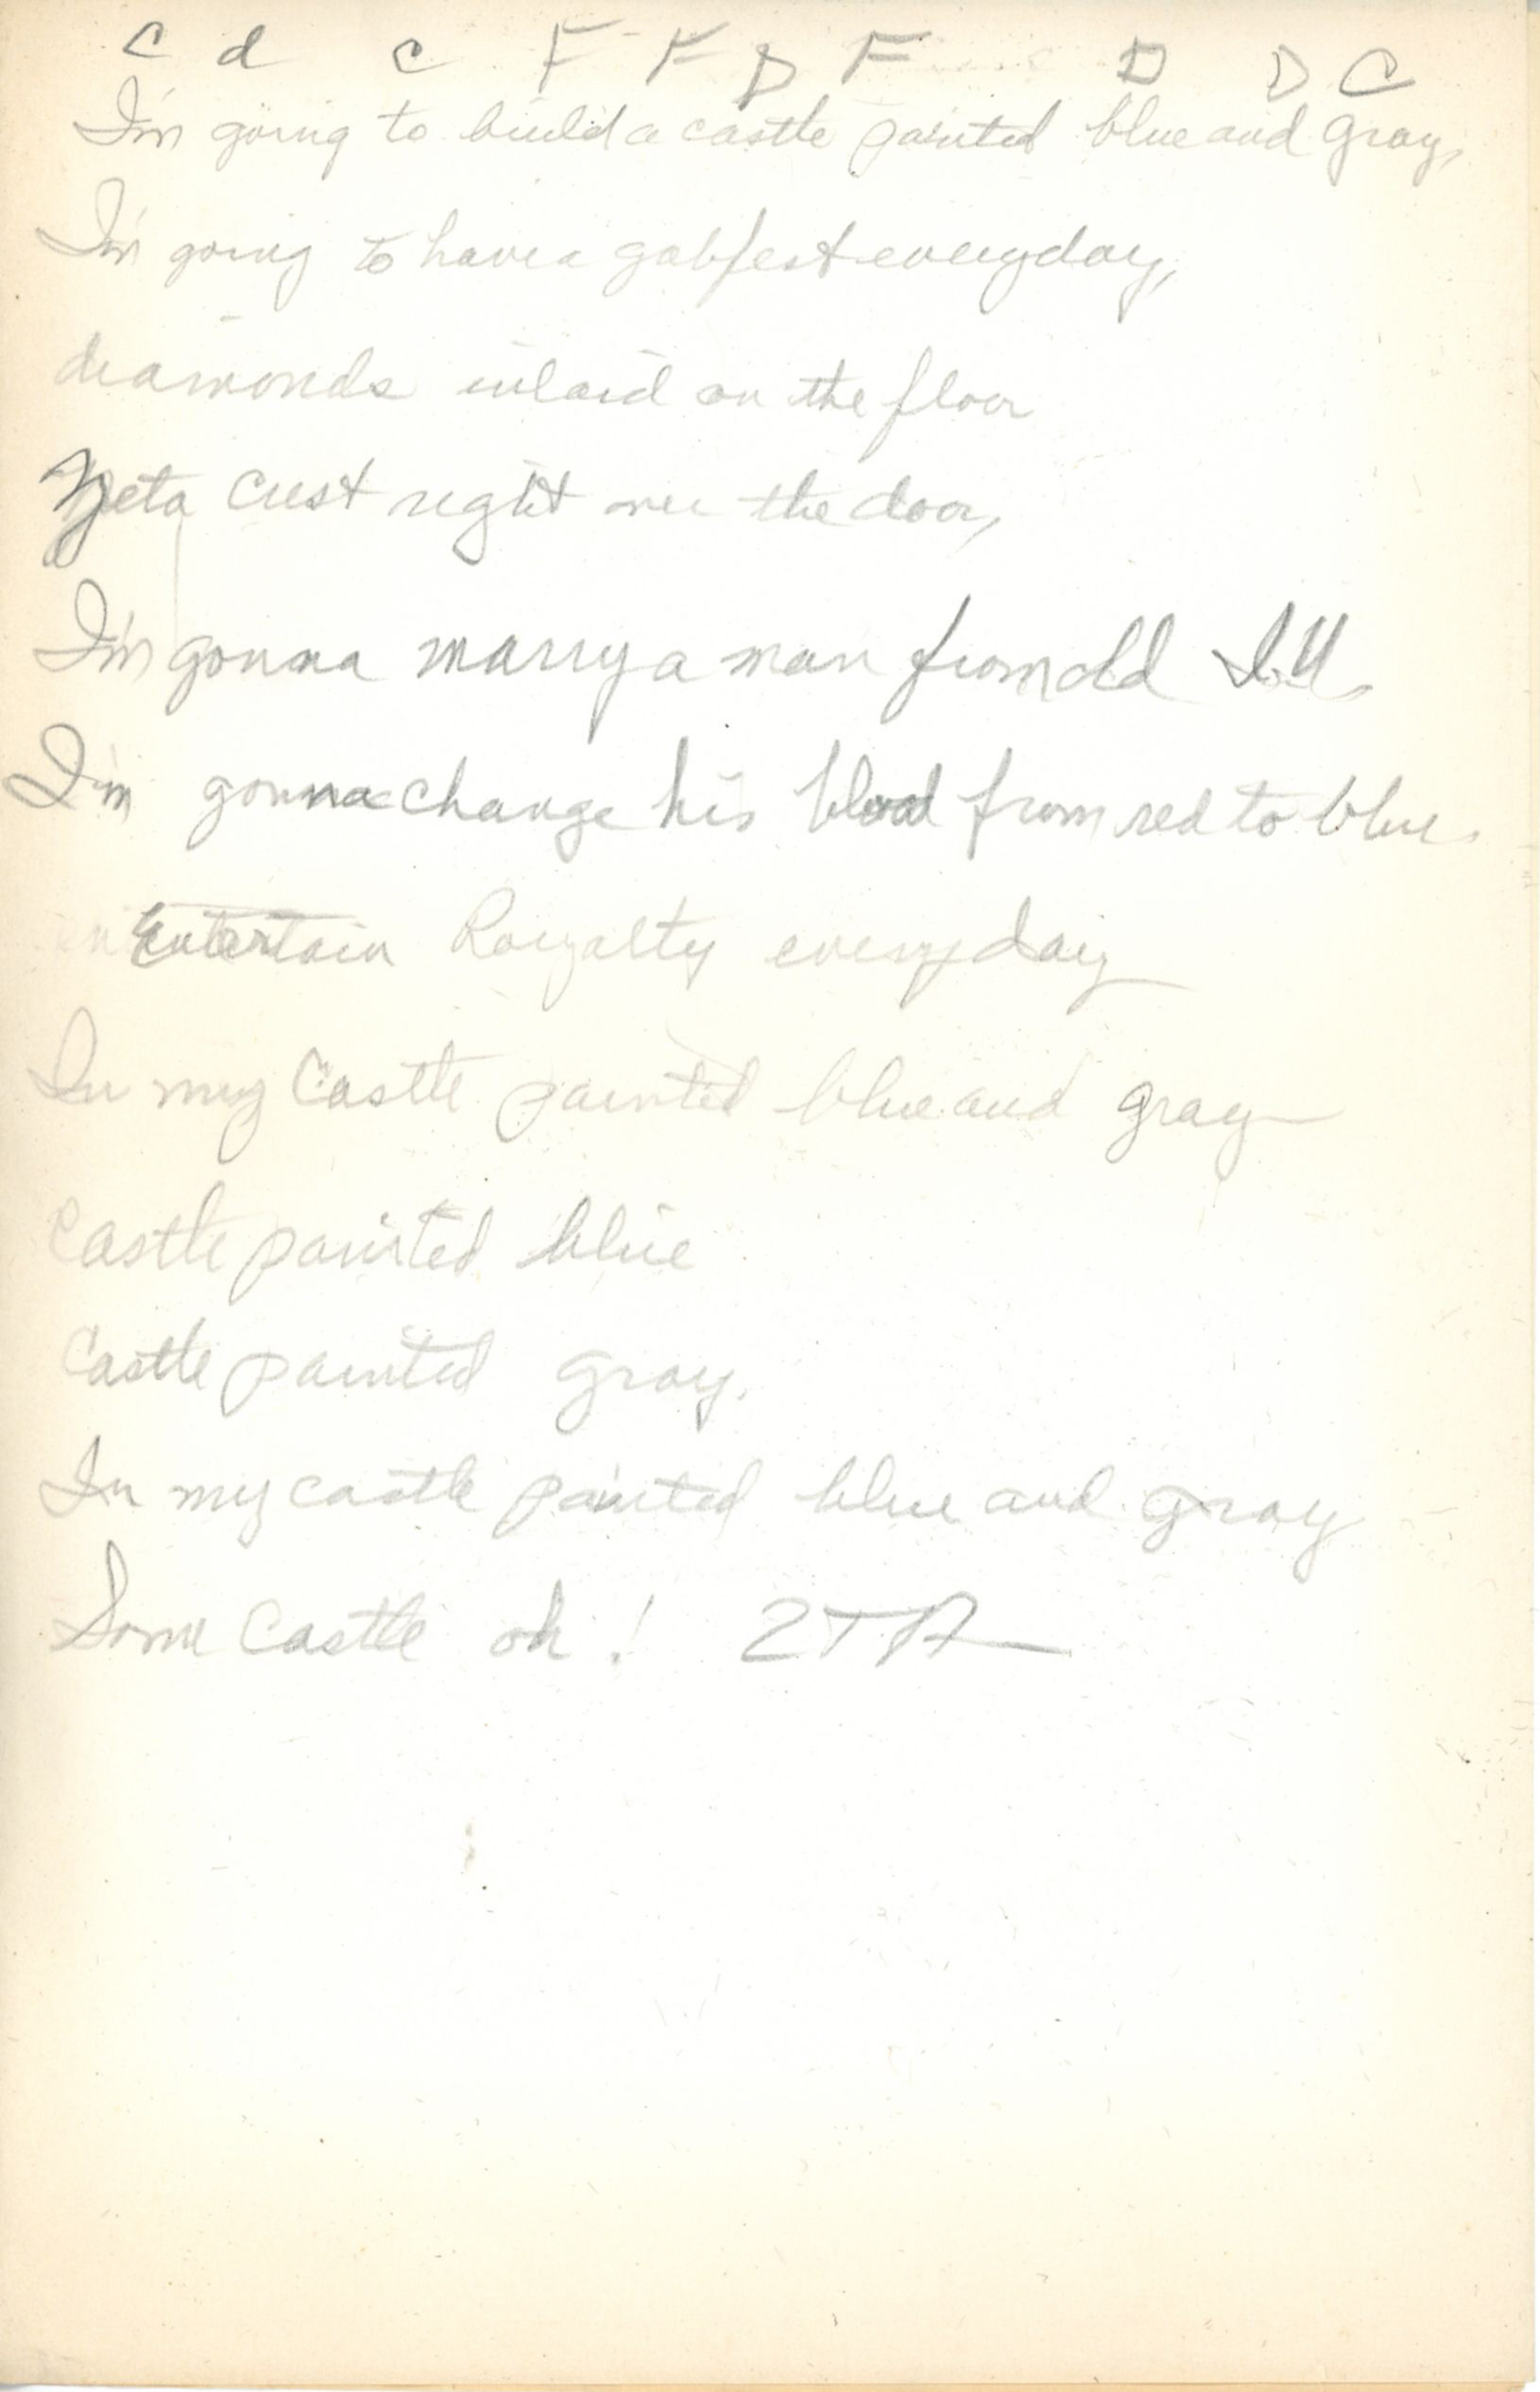 C d c F F D F D D C
I'm going to build a castle painted blue and gray,
I'm going to have a gabfest everyday,
diamonds inlaid on the floor
Zeta Crest right over the door,
I'm gonna marry a man from old I.U.
I'm gonna change his blood from red to blue.
Entertain Royalty everyday
In my Castle painted blue and gray
Castle painted blue
Castle painted gray.
In my castle painted blue and gray
Some Castle oh! ZTA